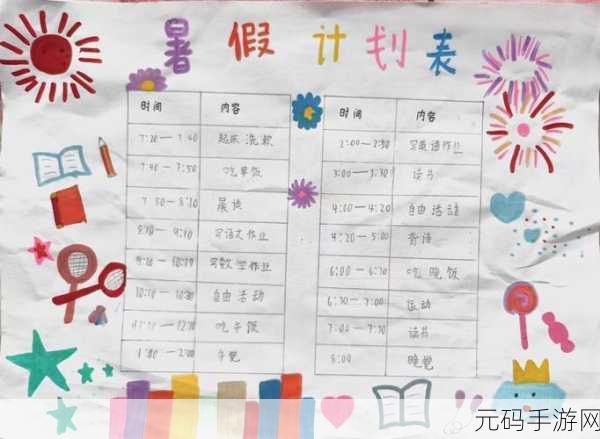 暑假计划表
时间 内容
7:20—7:40 起床洗漱
7:40—7:50 吃早饭
7:50—8:10 晨读
8:10—9:10 写语文作业
写数学作业
10:10—10:30 自由活动
吃午饭
午觉
时间 内容
2:00—2:50 写英语作业
3:00—3:30 读书
4:00—4:20 自由活动
4:20—5:00
6:00—6:30 吃晚饭
6:30—7:00 运动
7:00—7:30 读书
8:00 睡觉
元码手游网